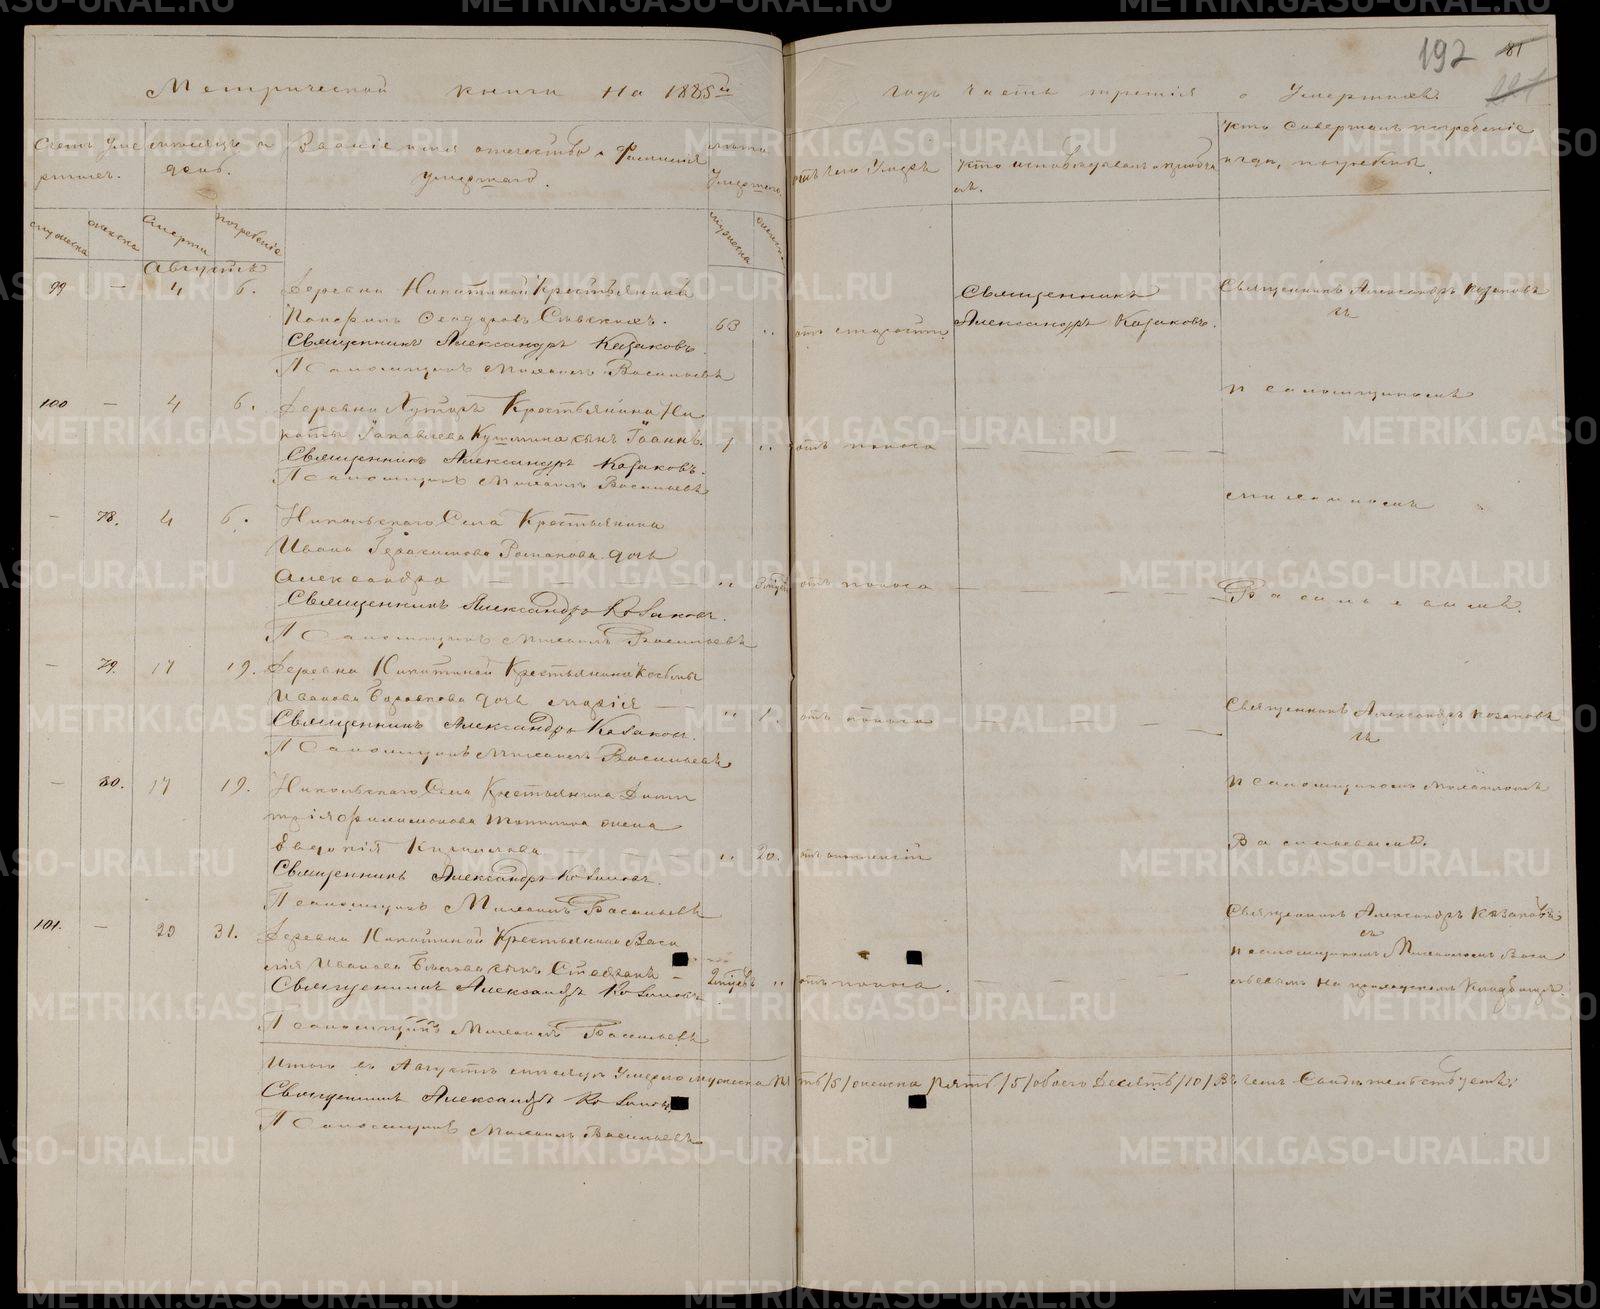 Метрической книги на 1885й годъ часть третія о Умершихъ.
192
81
Счетъ умершихъ.
мѣсяцъ и день.
Званіе имя отечество и фамилія умершаго.
лѣта умершаго
отъ чего умеръ
кто исповѣдовалъ и пріобщалъ.
кто совершалъ погребеніе и гдѣ погребены
мужеска
женска
смерти
погребенія
мужеска
женска
Августъ
99 — 4 6. Деревни Никитиной Крестьянинъ
Панфилъ Феодоровъ
63 „ отъ старости
Священникъ
Александръ Казаковъ.
Священникъ Александръ Казаковъ
съ
Священникъ Александръ Казаковъ.
Псаломщикъ Михаилъ Васильевъ
100 — 4 6. Деревни Крестьянина
сынъ Іоаннъ. 1 „ отъ поноса
псаломщикомъ
Священникъ Александръ Казаковъ.
Псаломщикъ Михаилъ Васильевъ
Михаиломъ
— 78. 4 6. Никольскаго Села Крестьянина
Ивана Герасимова Романова дочь
Александра „ отъ поноса
Васильевымъ.
Священникъ Александръ Казаковъ.
Псаломщикъ Михаилъ Васильевъ
— 79. 17 19. Деревни Никитиной Крестьянина Косьмы
Иванова дочь Марія „ 1. отъ поноса
Священникъ Александръ Казаковъ
съ
Священникъ Александръ Казаковъ.
Псаломщикъ Михаилъ Васильевъ
— 80. 17 19. Никольскаго Села Крестьянина Дими
трія Филимонова жена
псаломщикомъ Михаиломъ
Евдокія Кириллова „ 20. отъ
Васильевымъ.
Священникъ Александръ Казаковъ.
Псаломщикъ Михаилъ Васильевъ
101. — 29 31. Деревни Никитиной Крестьянина Васи
лія Иванова сынъ Стефанъ
2 мѣсяцъ „ отъ поноса.
Священникъ Александръ Казаковъ
съ
псаломщикомъ Михаиломъ Васи
льевымъ на приходскомъ кладбищѣ
Священникъ Александръ Казаковъ
Псаломщикъ Михаилъ Васильевъ
Итого въ Августѣ мѣсяцѣ умерло мужеска пять /5/ женска пять /5/ обоего десять /10/ Въ чемъ Свидѣтельствуемъ:
Священникъ Александръ Казаковъ
Псаломщикъ Михаилъ Васильевъ
METRIKI.GASO-URAL.RU